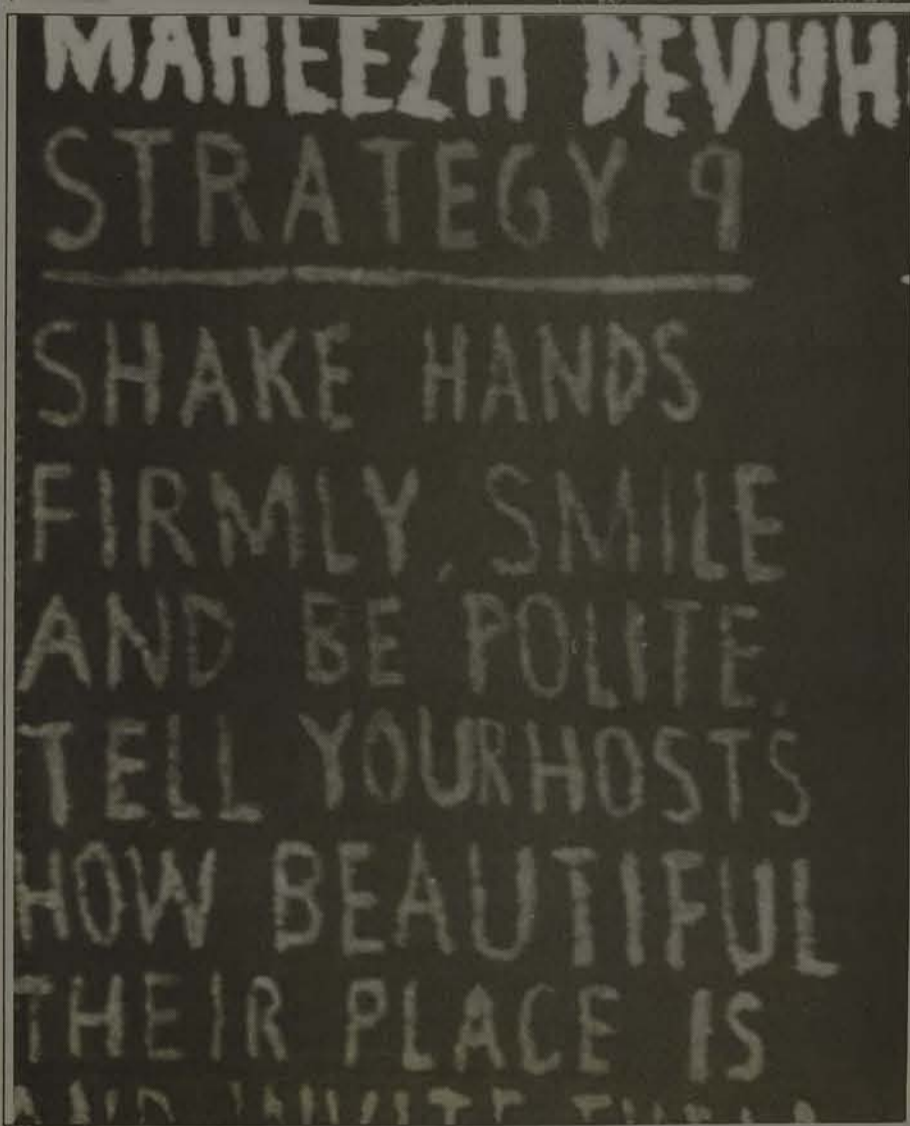 MAHEEZH DEVUH
STRATEGY 9
SHAKE HANDS
FIRMLY, SMILE
AND BE POLITE.
TELL YOUR HOSTS
HOW BEAUTIFUL
THEIR PLACE IS
AND INVITE THEM